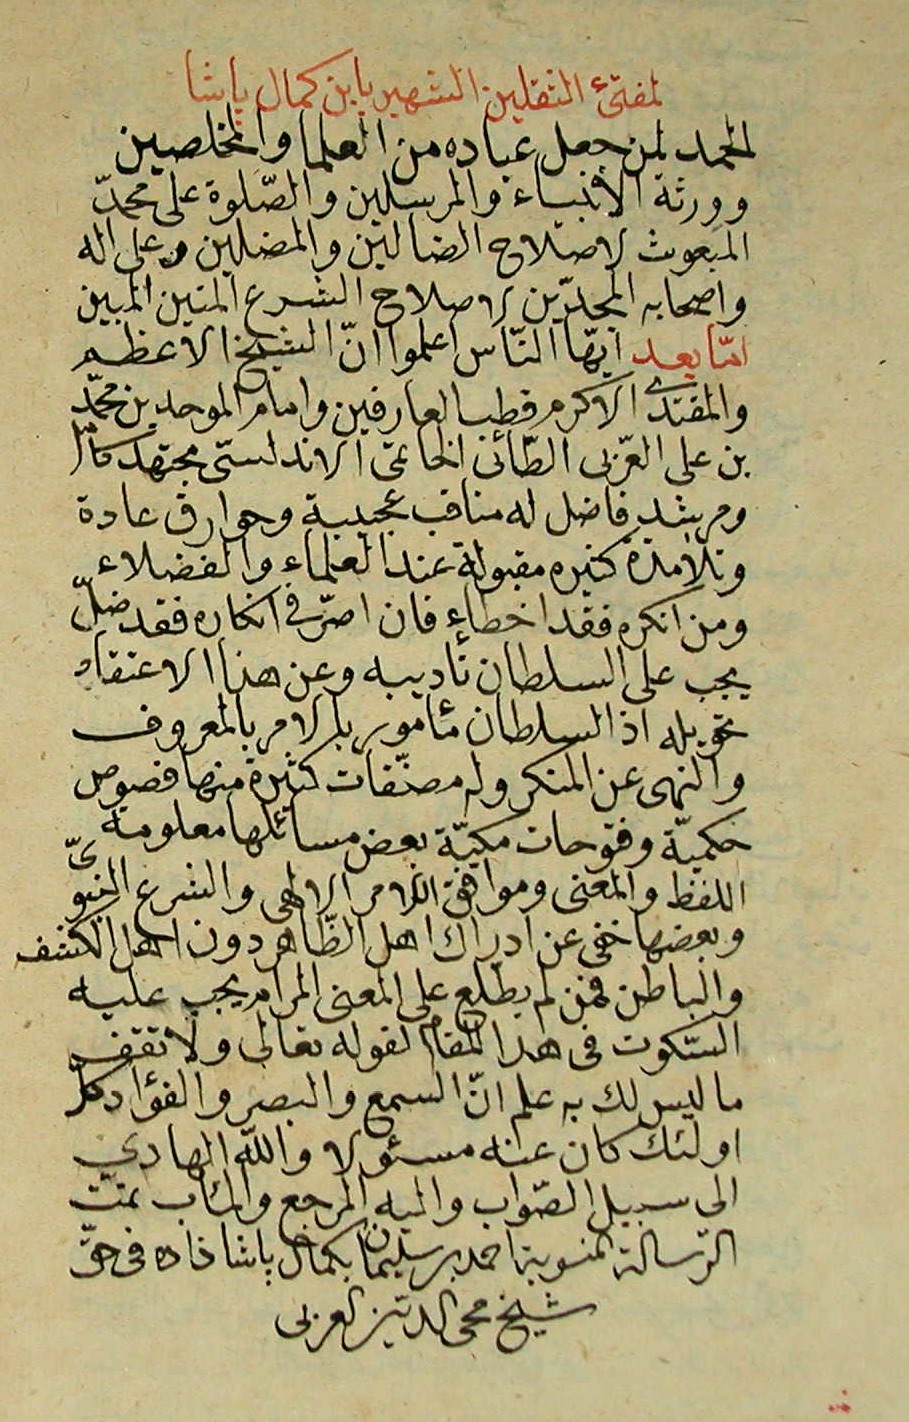 لمفتئ الثقلين الشهير بابن كمال پاشا
الحمد لمن جعل عباده من العلما والمخلصين
وورثة الانبياء والمرسلين والصّلوة على محمدّ
المبعوث لاصلاح الضالين والمضلين وعلى اله
واصحابه المجدّين لاصلاح الشرع المتين المبين
امّا بعد ايّها النّاس اعلموا انّ الشيخ الاعظم
والمقتدى الاكرم قطب العارفين وامام الموحدين محمّد
بن على العرّبى الطّائى الخاتمى الاندلسىّ مجتهد كامل
ومرشد فاضل له مناقب عجيبة وخوارق عادة
وتلامذة كثيره مقبولة عند العلماء والفضلاء
ومن انكره فقد اخطاء فان اصرّ فى انكاره فقد ضلّ
يجب على السلطان تاديبه وعن هذا الاعتقاد
تحويله اذ السلطان مأمور بالامر بالمعروف
والنهى عن المنكر وله مصنّفات كثيرة منها فصوص
حكميّة وفتوحات مكيّة بعض مسائلها معلومة
اللفظ والمعنى وموافق للامر الالهى والشرع النبوىّ
وبعضها خفى عن ادراك اهل الظّاهر دون اهل الكشف
والباطن فمن لم يطّلع على المعنى المرام يجب عليه
السّكوت فى هذا المقام لقوله تعالى ولا تقف
ما ليس لك به علم انّ السمع والبصر والفؤاد كل
اولئك كان عنه مسئولا والله الهادى
الى سبيل الصّواب واليه المرجع والمئاب تمّت
الرّسالة المنسوبة احمد بن سليمان بكمال پاشا ذاده فى حقّ
شيخ محى الدّين العربى